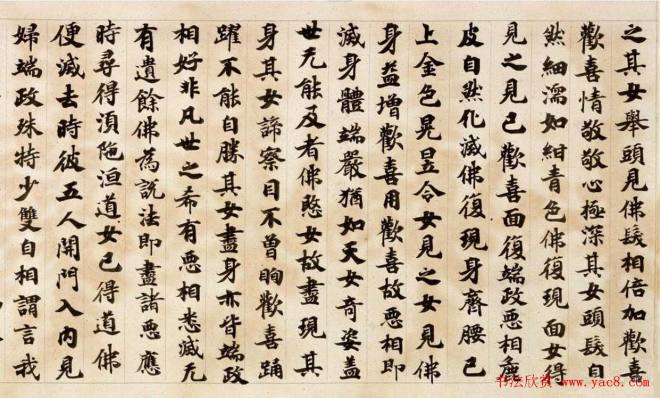 之其女舉頭見佛髮相倍加歡喜
歡喜情敬敬心極深其女頭髮自
然細濡如紺青色佛復現面女得
見之見已歡喜面復端政惡相麁
皮自然化滅佛復現身齊腰已
上金色晃昱令女見之女見佛
身益增歡喜用歡喜故惡相即
滅身體端嚴猶如天女奇姿蓋
世无能及者佛愍女故盡現其
身其女諦察目不曾眴歡喜踊
躍不能自勝其女盡身亦皆端政
相好非凡世之希有惡相悉滅无
有遺餘佛為說法即盡諸惡應
時尋得湏陁洹道女已得道佛
便滅去時彼五人開門入內見
婦端政殊特少雙自相謂言我
书法欣赏·www.yac8.com